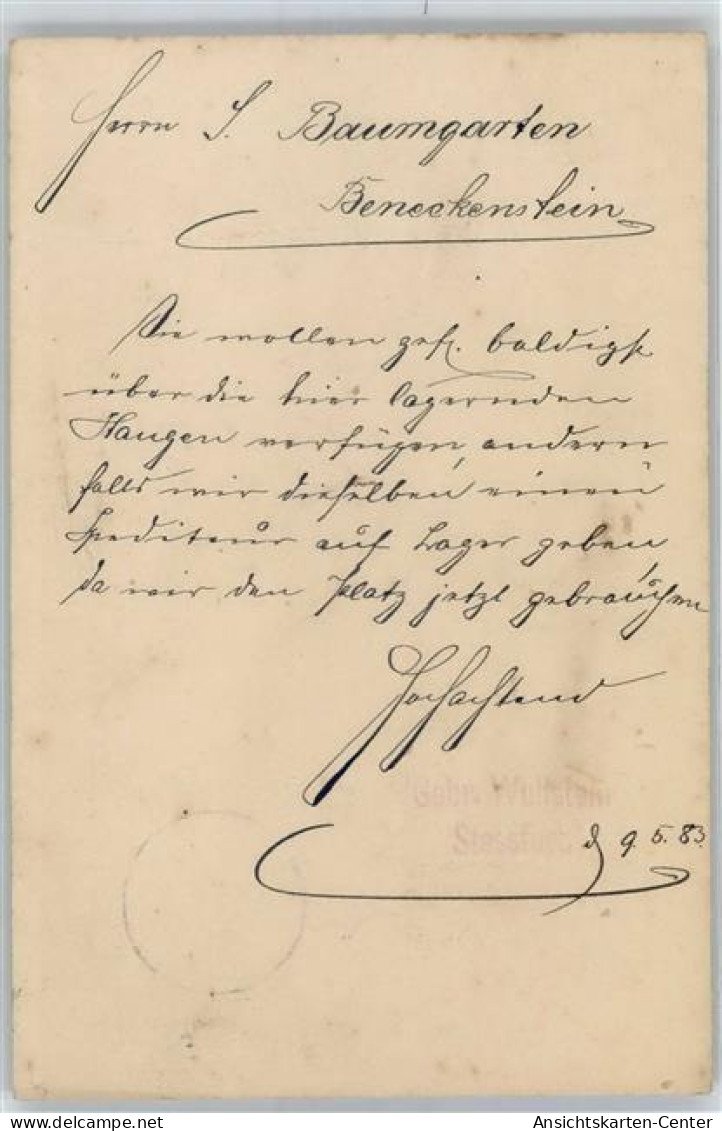 Herrn S. Baumgarten
Beneckenstein
Sie wollen gefl. baldigst
über die hier lagernden
verfügen, andern
falls wir dieselben einem
Spediteur auf Lager geben
da wir den Platz jetzt gebrauchen
Hochachtend
Gebr. Wulfstein
Stassfurt
d 9. 5. 83.
Ansichtskarten-Center